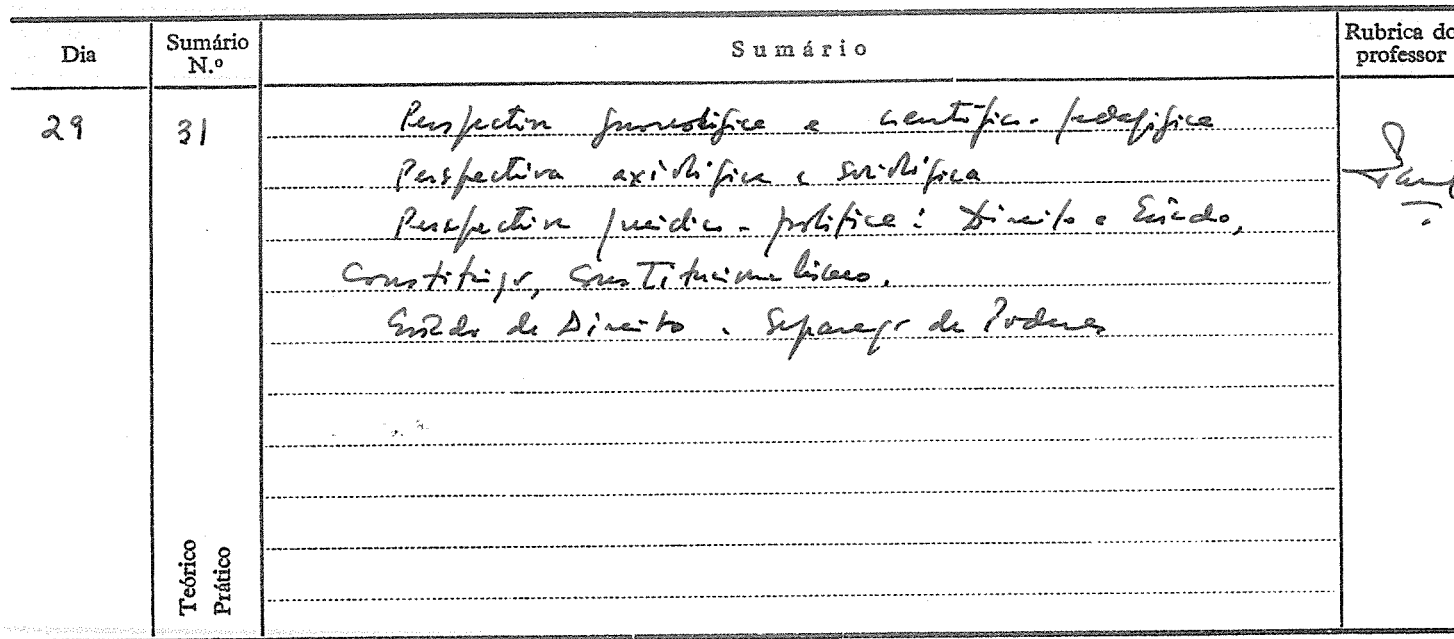 Dia
Sumário N.º
Sumário
Rubrica do professor
29
31
Perspectiva gnoseológica e científico-pedagógica
Perspectiva axiológica e sociológica
Perspectiva jurídico-política: Direito e Estado,
Constituição, Constitucionalismo.
Estado de Direito. Separação de Poderes
Teórico
Prático